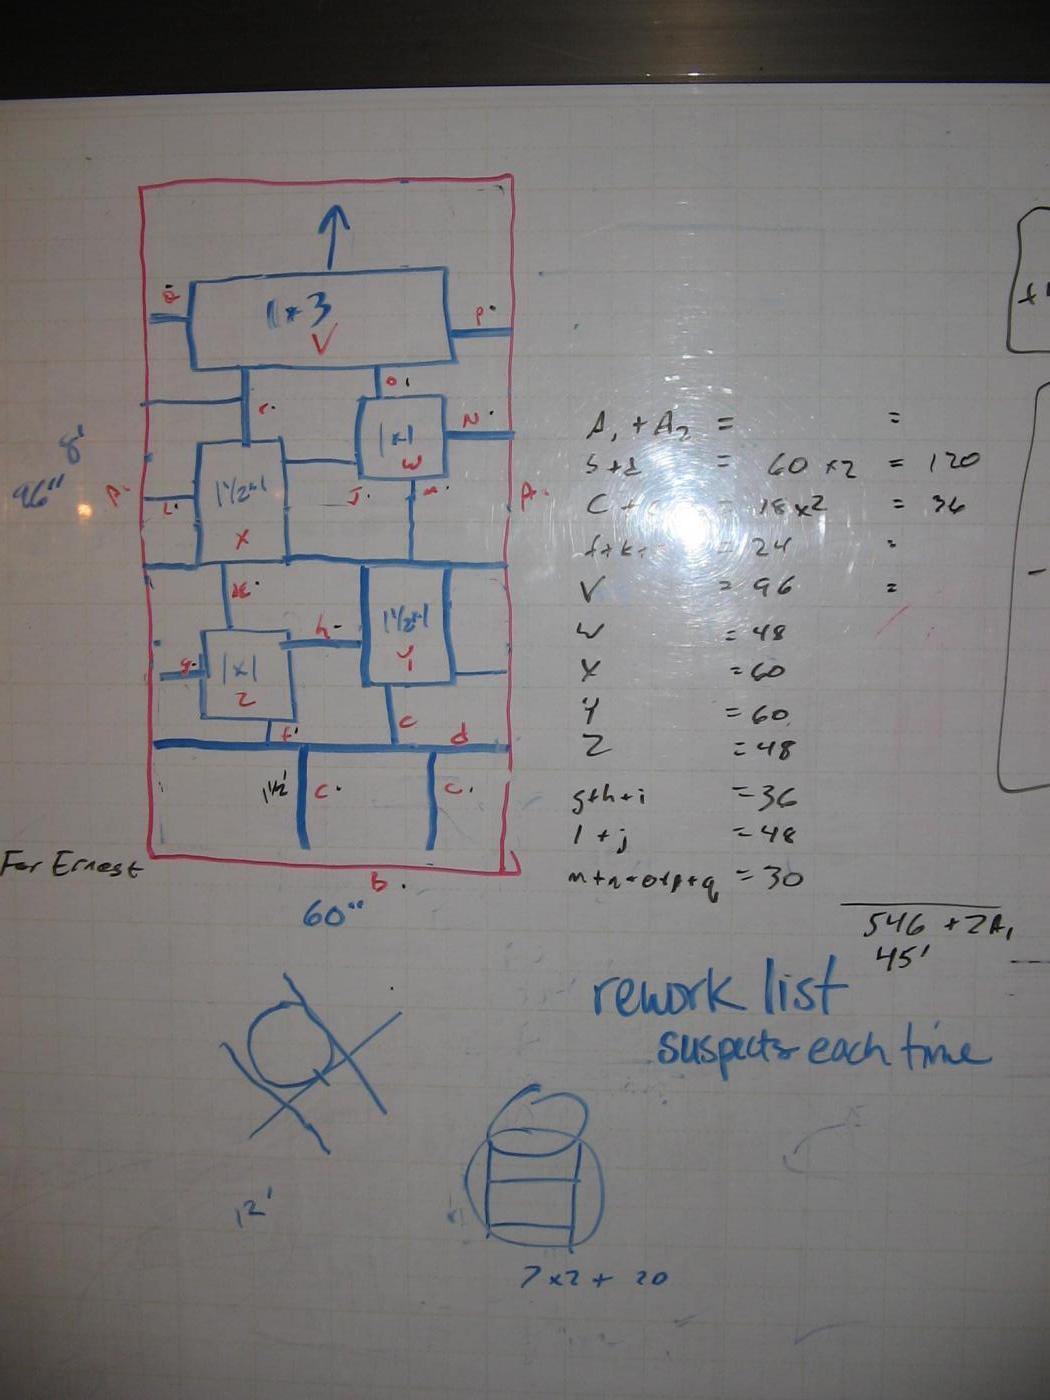 1×3
V
p.
o.
r.
N.
1×1
W
8'
96"
1½×1
X
j.
A.
k.
h.
1½×1
Y
g.
1×1
Z
f
c
d
1½'
c.
c.
For Ernest
B.
60"
A₁ + A₂ = =
= 60 ×2 = 120
C + = 18×2 = 36
f+k+ = 24 =
V = 96 =
W = 48
X = 60
Y = 60
Z = 48
g+h+i = 36
l + j = 48
m+n+o+p+q = 30
546 + 2A₁
45'
rework list
suspects each time
12'
7×2 + 20